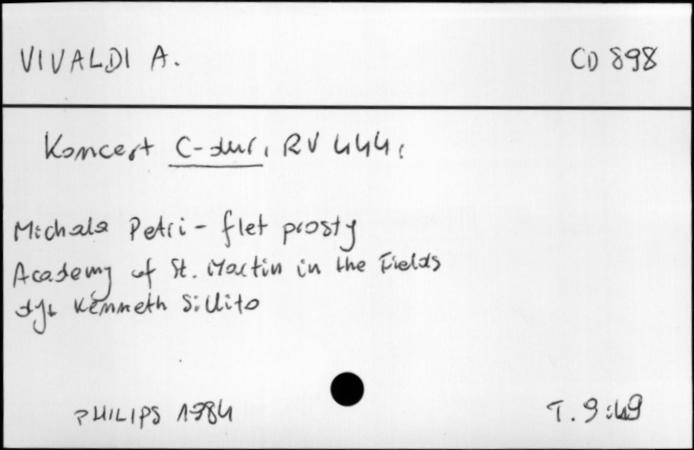 VIVALDI A. CD 898
Koncert C-dur, RV 444,
Michala Petri - flet prosty
Academy of St. Martin in the Fields
dyr Kenneth Sillito
PHILIPS 1984 T. 9:49